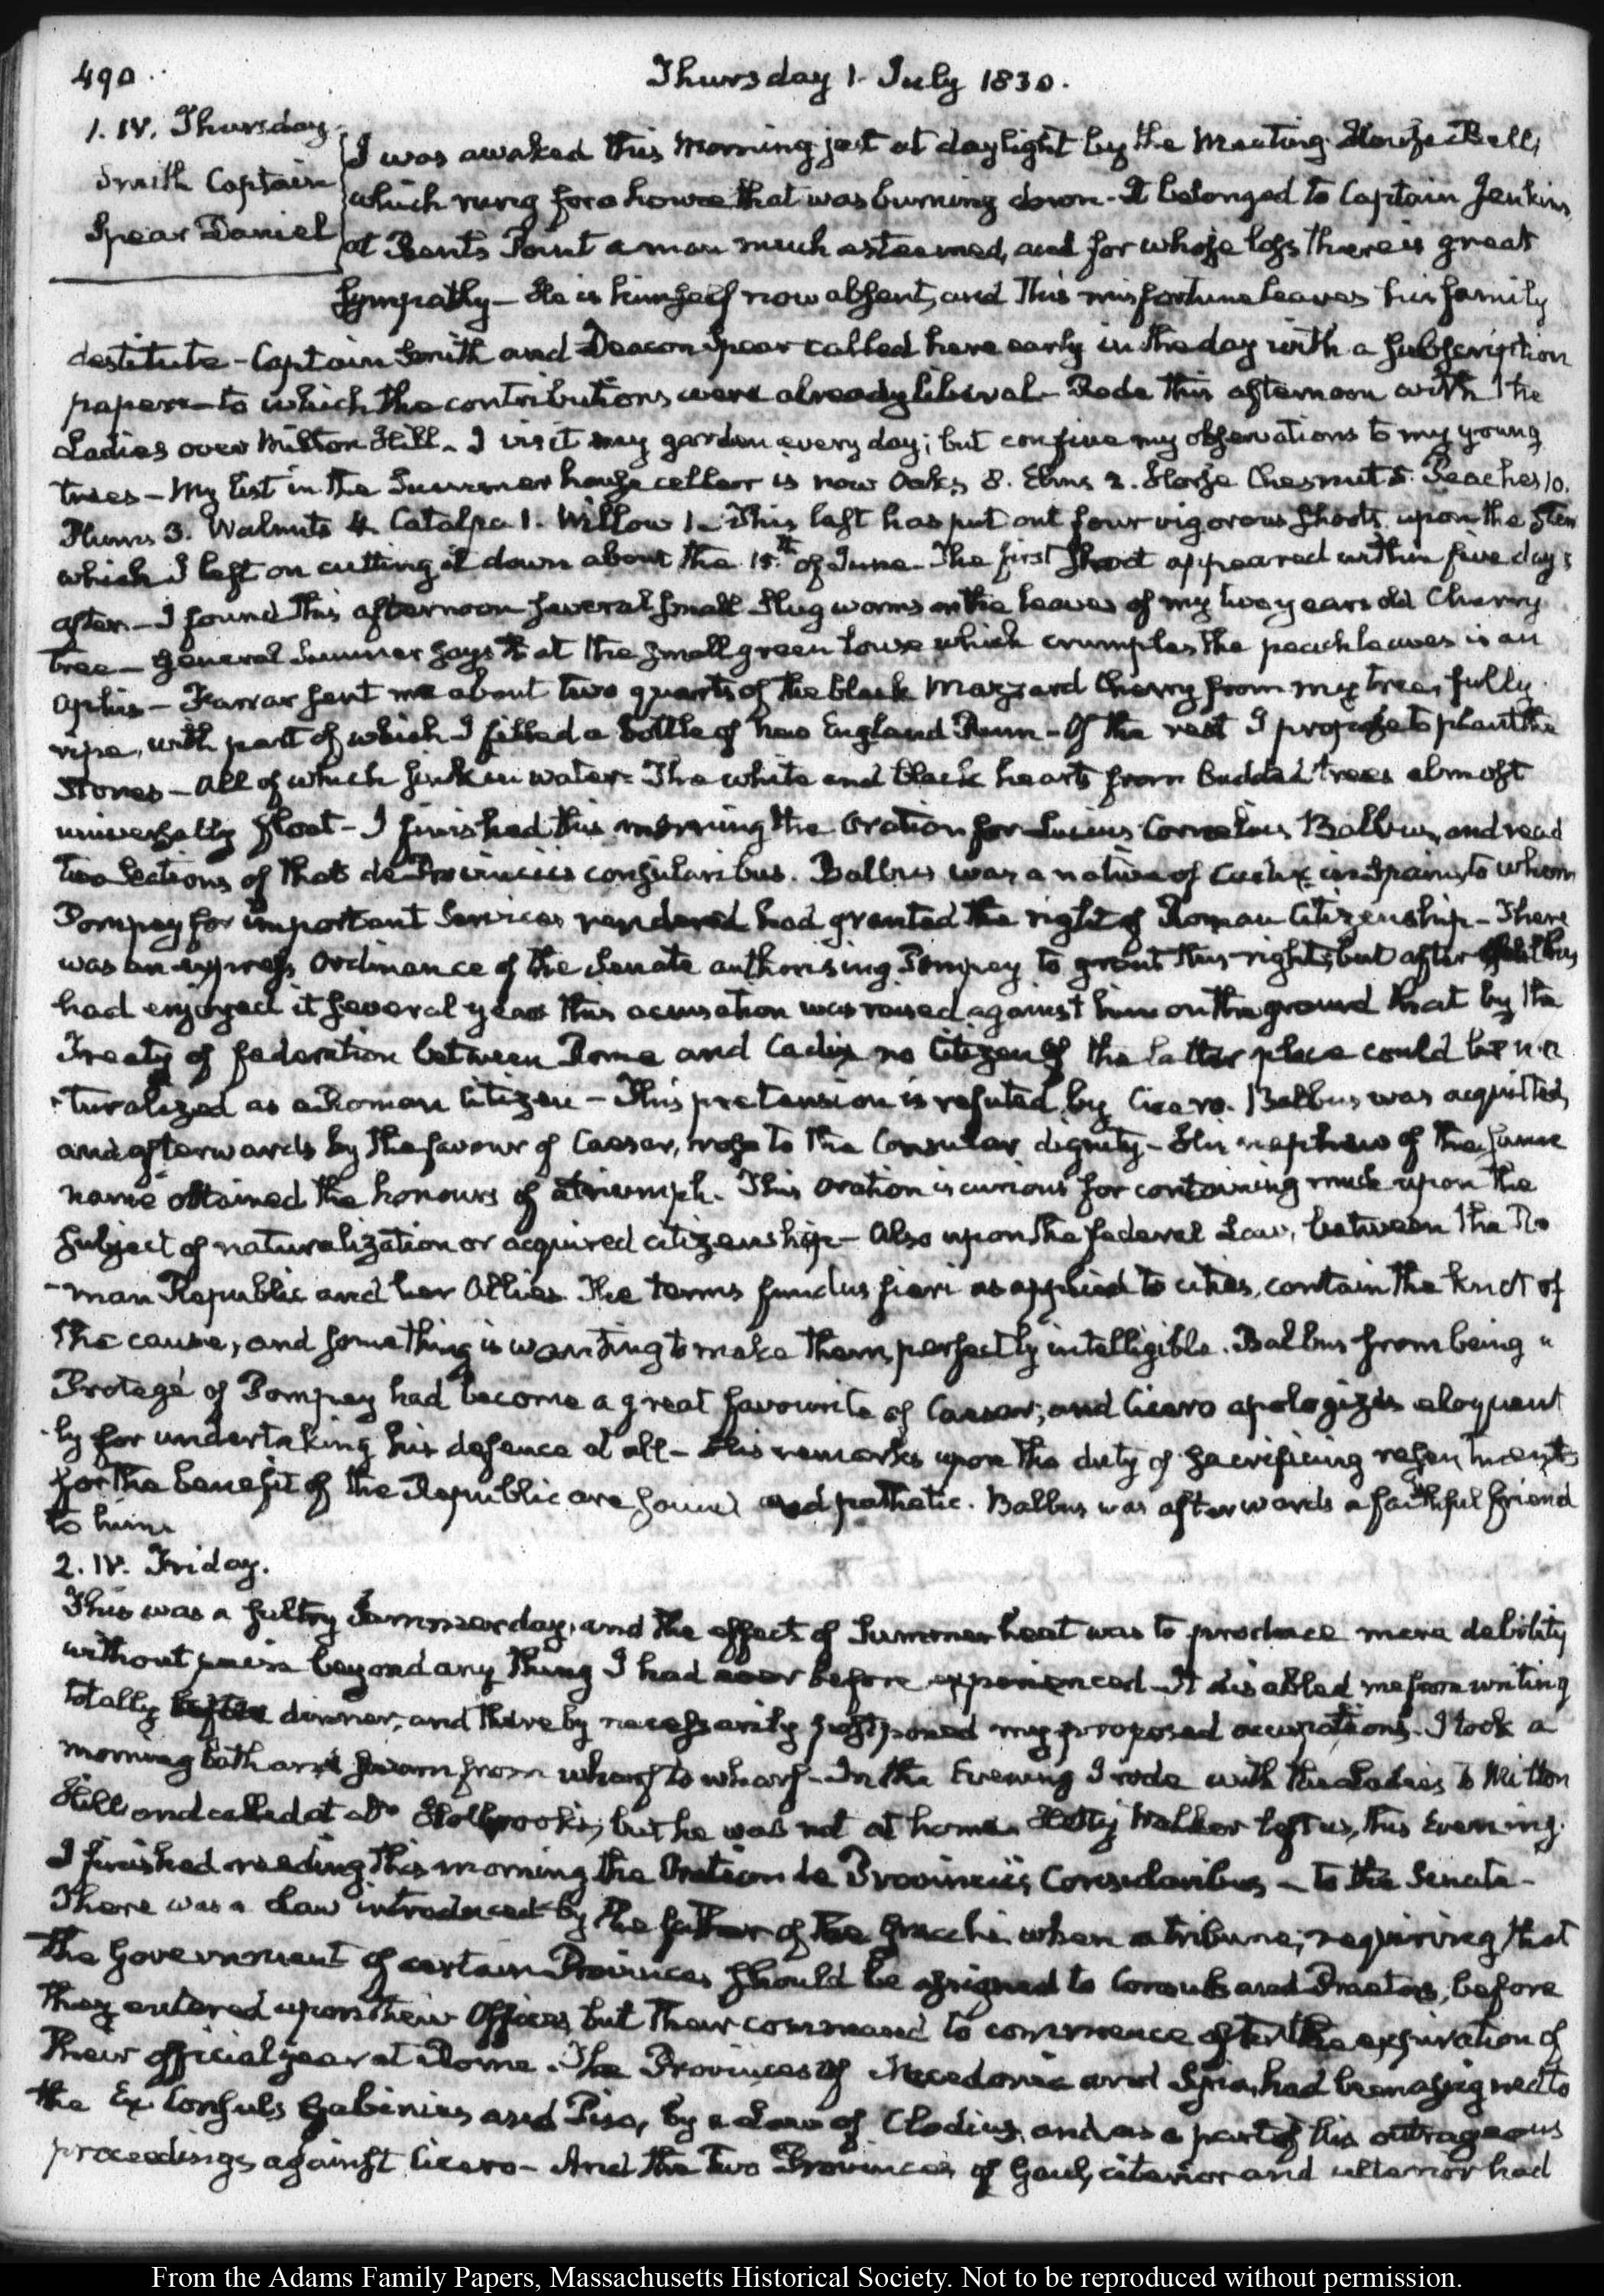 490.
Thursday 1. July 1830.
1. IV. Thursday.
Smith Captain
Spear Daniel
I was awaked this Morning just at daylight by the Meeting House Bell,
which rung for a house that was burning down - It belonged to Captain Jenkins
at Bents Point a man much esteemed, and for whose loss there is great
sympathy - He is himself now absent, and this misfortune leaves his family
destitute - Captain Smith and Deacon Spear called here early in the day with a subscription
paper - to which the contributions were already liberal - Rode this afternoon with the
Ladies over Milton Hill - I visit my garden every day; but confine my observations to my young
trees - My list in the Summer house cellar is now Oaks 8. Elms 2. Horse Chesnut 5. Peaches 10.
Plums 3. Walnuts 4. Catalpa 1. Willow 1 - This last has put out four vigorous shoots upon the stem
which I left on cutting it down about the 15th. of June - The first shoot appeared within five days
after - I found this afternoon several small Slug worms on the leaves of my two years old Cherry
tree - General Sumner says that the small green louse which crumples the peach leaves is an
aphis - Farrar sent me about two quarts of the black Mazzard Cherry from my tree, fully
ripe, with part of which I filled a bottle of New England Rum - Of the rest I propose to plant the
Stones - All of which sink in water - The white and black hearts from budded trees almost
universally float - I finished this morning the Oration for Lucius Cornelius Balbus, and read
two Sections of that de Provinciis consularibus. Balbus was a native of Cadix in Spain, to whom
Pompey for important Services rendered had granted the right of Roman Citizenship - There
was an express Ordinance of the Senate authorising Pompey to grant this right, but after Balbus
had enjoyed it several years this accusation was raised against him on the ground that by the
Treaty of federation between Rome and Cadix no Citizen of the latter place could be na
-turalized as a Roman Citizen - This pretension is refuted by Cicero. Balbus was acquitted,
and afterwards by the favour of Caesar, rose to the Consular dignity - His nephew of the same
name obtained the honours of a triumph. This Oration is curious for containing much upon the
subject of naturalization or acquired citizenship - Also upon the federal Law, between the Ro
-man Republic and her Allies. The terms fundus fieri as applied to cities, contain the knot of
the cause, and something is wanting to make them perfectly intelligible. Balbus from being a
Protegé of Pompey had become a great favourite of Caesar; and Cicero apologizes eloquent
-ly for undertaking his defence at all - His remarks upon the duty of sacrificing resentments
for the benefit of the Republic are sound and pathetic. Balbus was afterwards a faithful friend
to him.
2. IV. Friday.
This was a sultry Summer day, and the effect of Summer heat was to produce mere debility
without pain beyond any thing I had ever before experienced - It disabled me from writing
totally after dinner, and thereby necessarily postponed my proposed occupations. I took a
morning bath and swam from wharf to wharf - In the Evening I rode with the Ladies to Milton
Hill and called at Dr Holbrook's; but he was not at home. Hetty Walker left us, this Evening.
I finished reading this morning the Oration de Provinciis Consularibus - to the Senate -
There was a Law introduced by the father of the Gracchi when a tribune; requiring that
the Government of certain Provinces should be assigned to Consuls and Praetors, before
they entered upon their Offices, but their command to commence after the expiration of
their official year at Rome. The Provinces of Macedonia and Syria, had been assigned to
the Ex Consuls Gabinius and Piso, by a Law of Clodius, and as a part of his outrageous
proceedings against Cicero - And the two Provinces of Gaul, citerior and ulterior had
From the Adams Family Papers, Massachusetts Historical Society. Not to be reproduced without permission.